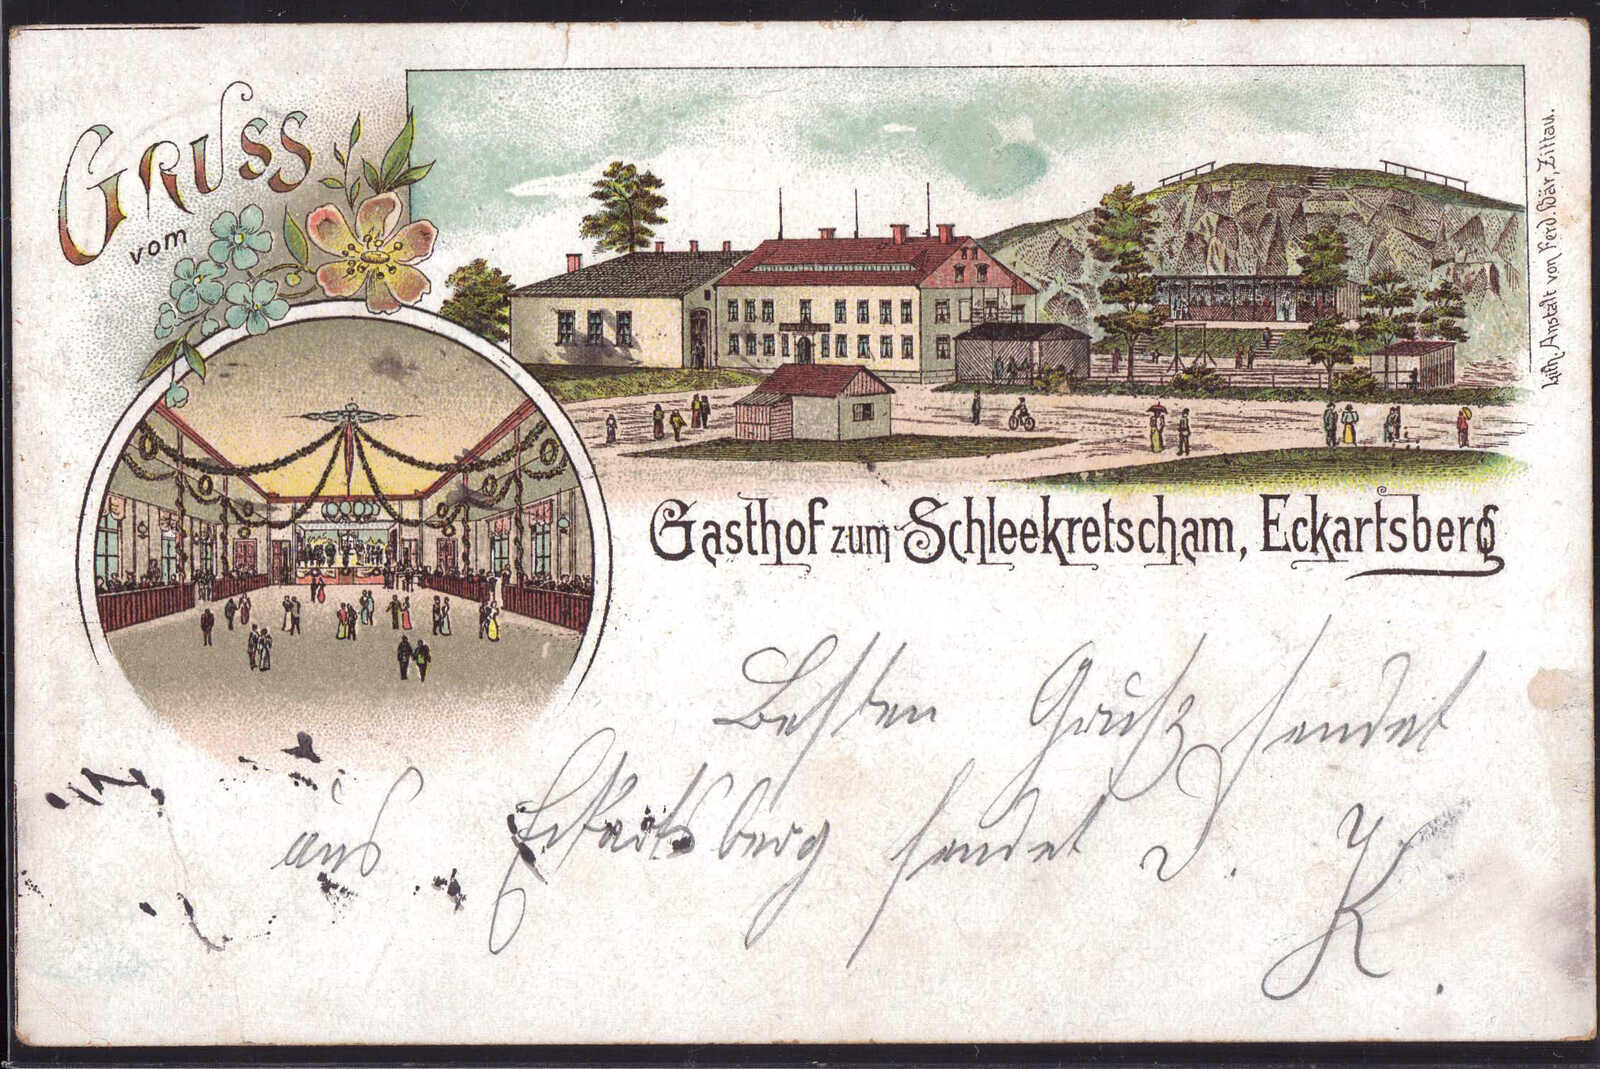 GRUSS
vom
Lith. Anstalt von Ferd. Bär, Zittau.
Gasthof zum Schleekretscham, Eckartsberg
Besten Gruß sendet
aus Eckartsberg sendet J.
K.